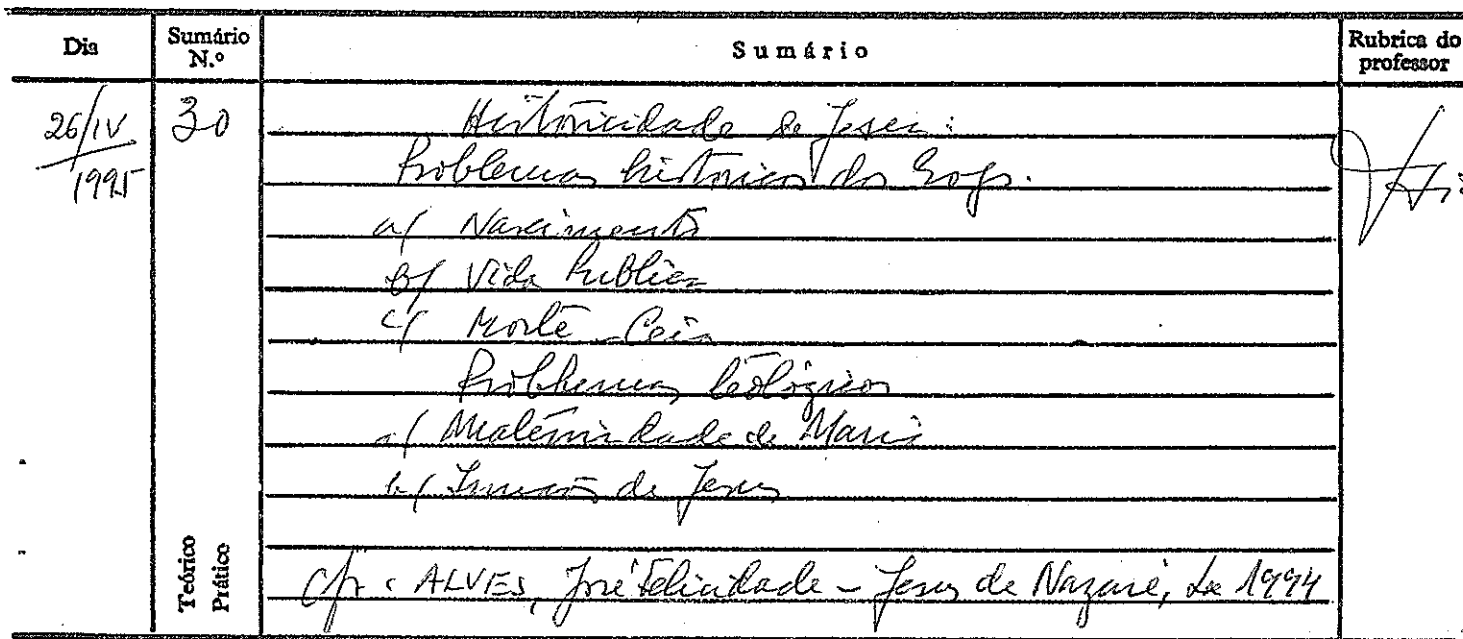 Dia Sumário N.º Sumário Rubrica do professor
26/IV/1995 30 Historicidade de Jesus:
Problemas históricos dos Evgs.
a/ Nascimento
b/ Vida Publica
c/ Morte - Ceia
Problemas teológicos
a/ Maternidade de Maria
b/ Irmãos de Jesus
Teórico Prático
cfr: ALVES, José Felicidade - Jesus de Nazaré, Lx 1994